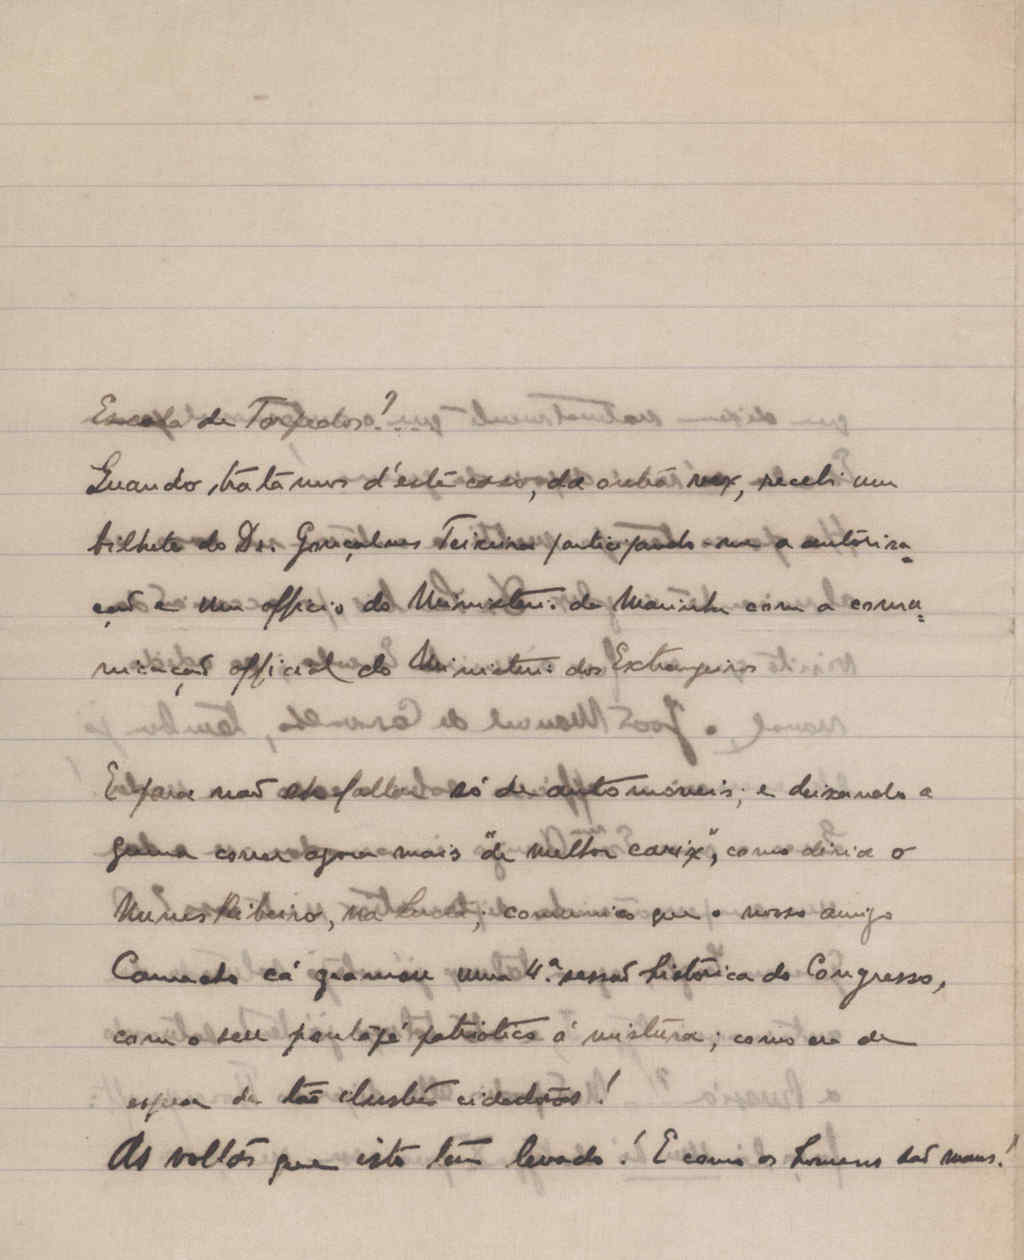 Escola de Torpedos?..
Quando tratámos d'este caso, da outra vez, recebi um
bilhete do Dr. Gonçalves Teixeira participando-me a autorisa-
ção e um officio do Ministeri. da Marinha com a comu-
nicação official do Ministeri. dos Extrangeiros
E para não só de automoveis; e deixando a
penna correr agora mais "de melhor carix", como diria o
Nunes Ribeiro, na communico que o nosso amigo
Camacho cá gramou uma 4.ª sessão historica do Congresso,
com o seu pontapé patriótico á mistura; como era de
esperar de tão illustres cidadãos!
As voltas que isto tem levado! E como os homens são maus!